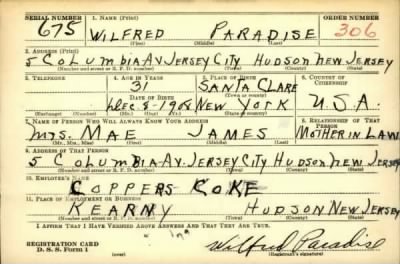 SERIAL NUMBER 1. NAME (Print) ORDER NUMBER
675 WILFRED PARADISE 306
(First) (Middle) (Last)
2. ADDRESS (Print)
5 COLUMBIA AV JERSEY CITY HUDSON NEW JERSEY
(Number and street or R. F. D. number) (Town) (County) (State)
3. TELEPHONE 4. AGE IN YEARS 5. PLACE OF BIRTH 6. COUNTRY OF CITIZENSHIP
31 SANTA CLARE
DATE OF BIRTH (Town or county)
Dec 8-1908 NEW YORK U.S.A.
(Mo.) (Day) (Yr.) (State or country)
7. NAME OF PERSON WHO WILL ALWAYS KNOW YOUR ADDRESS 8. RELATIONSHIP OF THAT PERSON
MRS. MAE JAMES MOTHER IN LAW
(Mr., Mrs., Miss) (First) (Middle) (Last)
9. ADDRESS OF THAT PERSON
5 COLUMBIA-AV-JERSEY CITY HUDSON NEW JERSEY
(Number and street or R. F. D. number) (Town) (County) (State)
10. EMPLOYER'S NAME
COPPERS COKE
11. PLACE OF EMPLOYMENT OR BUSINESS
KEARNY HUDSON NEW JERSEY
(Number and street or R. F. D. number) (Town) (County) (State)
I AFFIRM THAT I HAVE VERIFIED ABOVE ANSWERS AND THAT THEY ARE TRUE.
REGISTRATION CARD
D. S. S. Form 1 Wilfred Paradise
(over) (Registrant's signature)